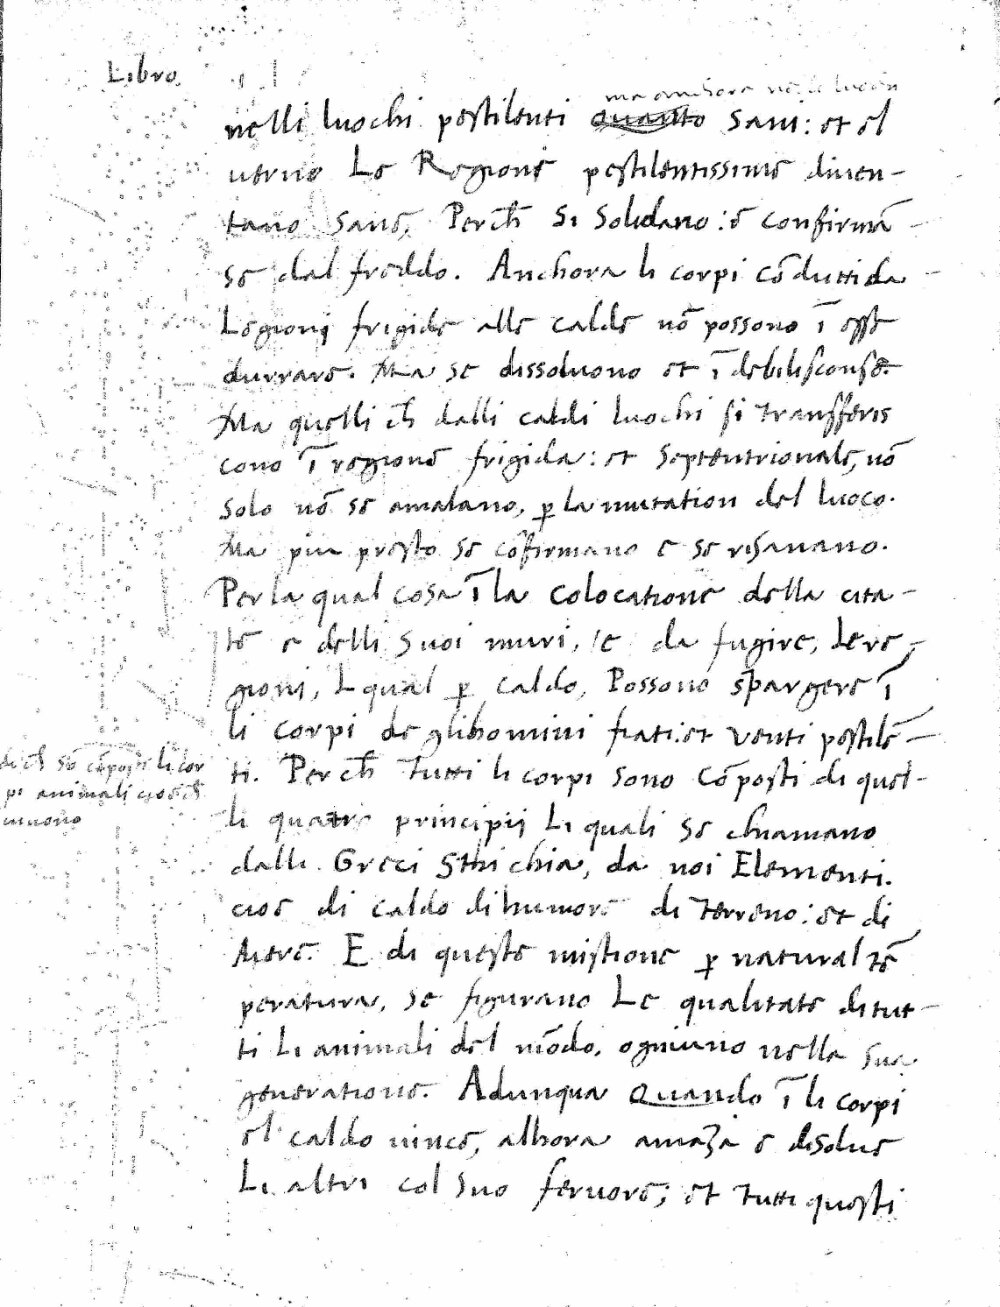 Libro
ma anchora nelli luochi
nelli luochi pestilenti quanto Sani: et el
uerno Le Regione pestilentissime diuen-
tano Sane, Perch̄ Si Solidano: e confirmā-
se dal freddo. Anchora li corpi cōdutti da
Legionj frigide alle calde nō possono ī esse
durrare. Ma se dissoluono et ī debiliscense.
Ma quelli ch̄ dalli caldi luochi si transferis
cono ī regione frigida: et septentrionale, nō
solo nō se amalano, ꝑ la mutation del luoco.
Ma piu presto se cōfirmano e se risanano.
Per la qual cosa ī la colocatione della cita-
te e delli suoi muri, e da fugire, le re-
gioni, L qual ꝑ caldo, Possono spargere ī
li corpi de glihomini fiati: et venti pestilē-
ti. Perch̄ Tutti li corpi sono cōposti di quel-
li quatro principij Li quali se chiamano
dalli Greci Sthichia, da noi Elementi.
cioe di caldo di humore di terreno: et di
Aere. E di queste mistione ꝑ natural tē
peratura, se figurano Le qualitate di tut-
ti Li animali del mōdo, ogniuno nella sua
generatione. Adunqua Quando ī li corpi
el caldo uince, alhora amaza e disolue
Li altri col suo feruore; et tutti questi
di ch̄ sō cōposti li cor
pi animali cioe ch̄
uiuono